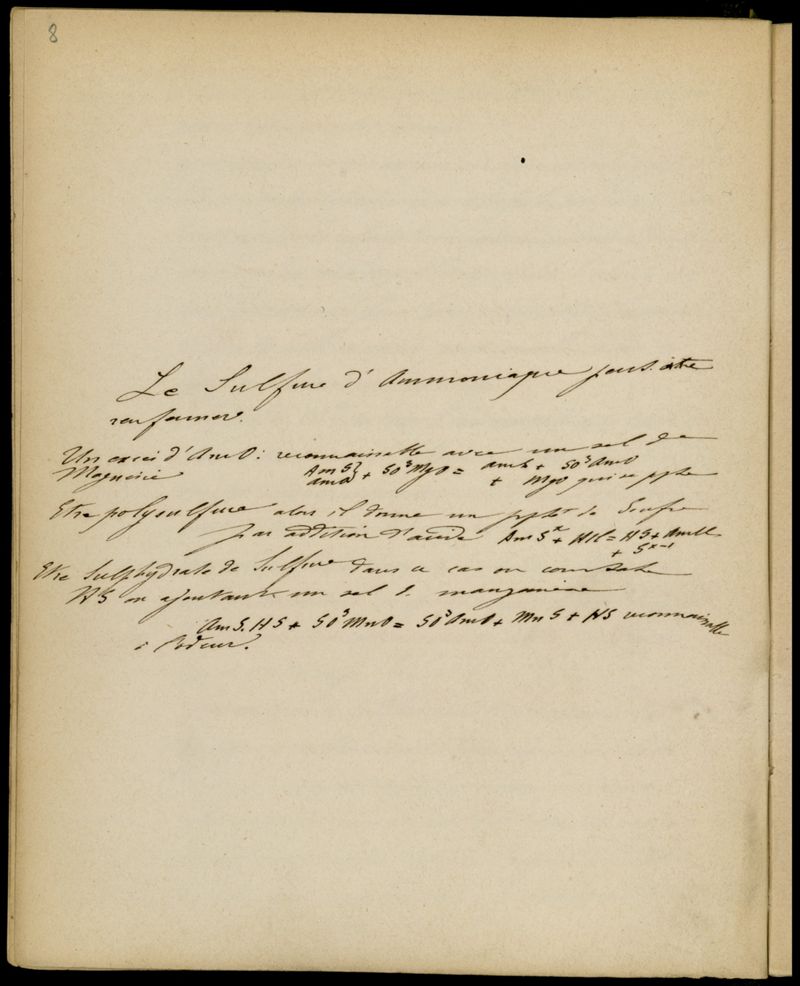 8
Le Sulfure d'Ammoniaque peut être
renfermer.
Un excès d'AmO: reconnaissable avec un sel de
Magnésie AmS} + SO³MgO = AmS + SO³AmO
AmO + MgO qui se ppte
Etre polysulfure alors il donne un ppté de Soufre
par addition d'acide AmSˣ + HCl = HS + AmCl
+ Sˣ⁻¹
Etre Sulfhydrate de Sulfure dans ce cas on constate
HS en ajoutant un sel de manganèse
AmS.HS + SO³MnO = SO³AmO + MnS + HS reconnaissable
à l'odeur.